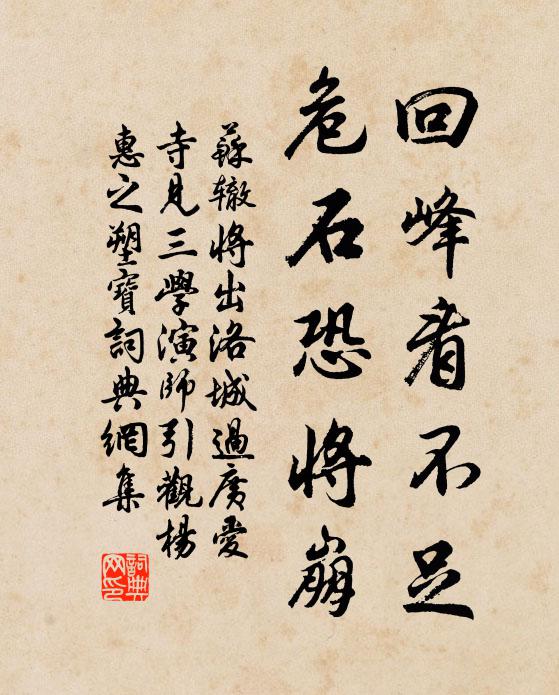 回峰看不足
危石恐將崩
蘇轍將出洛城過廣愛
寺見三學演師引觀楊
惠之塑寶詞典網集
詞典
网印